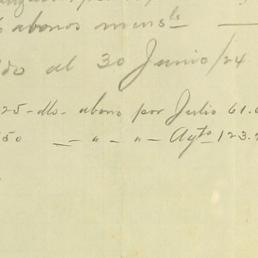 abonos mensls
do al 30 Junio/24
25 - dlo - abono por Julio 61.
50 — " — " — Agto 123.2